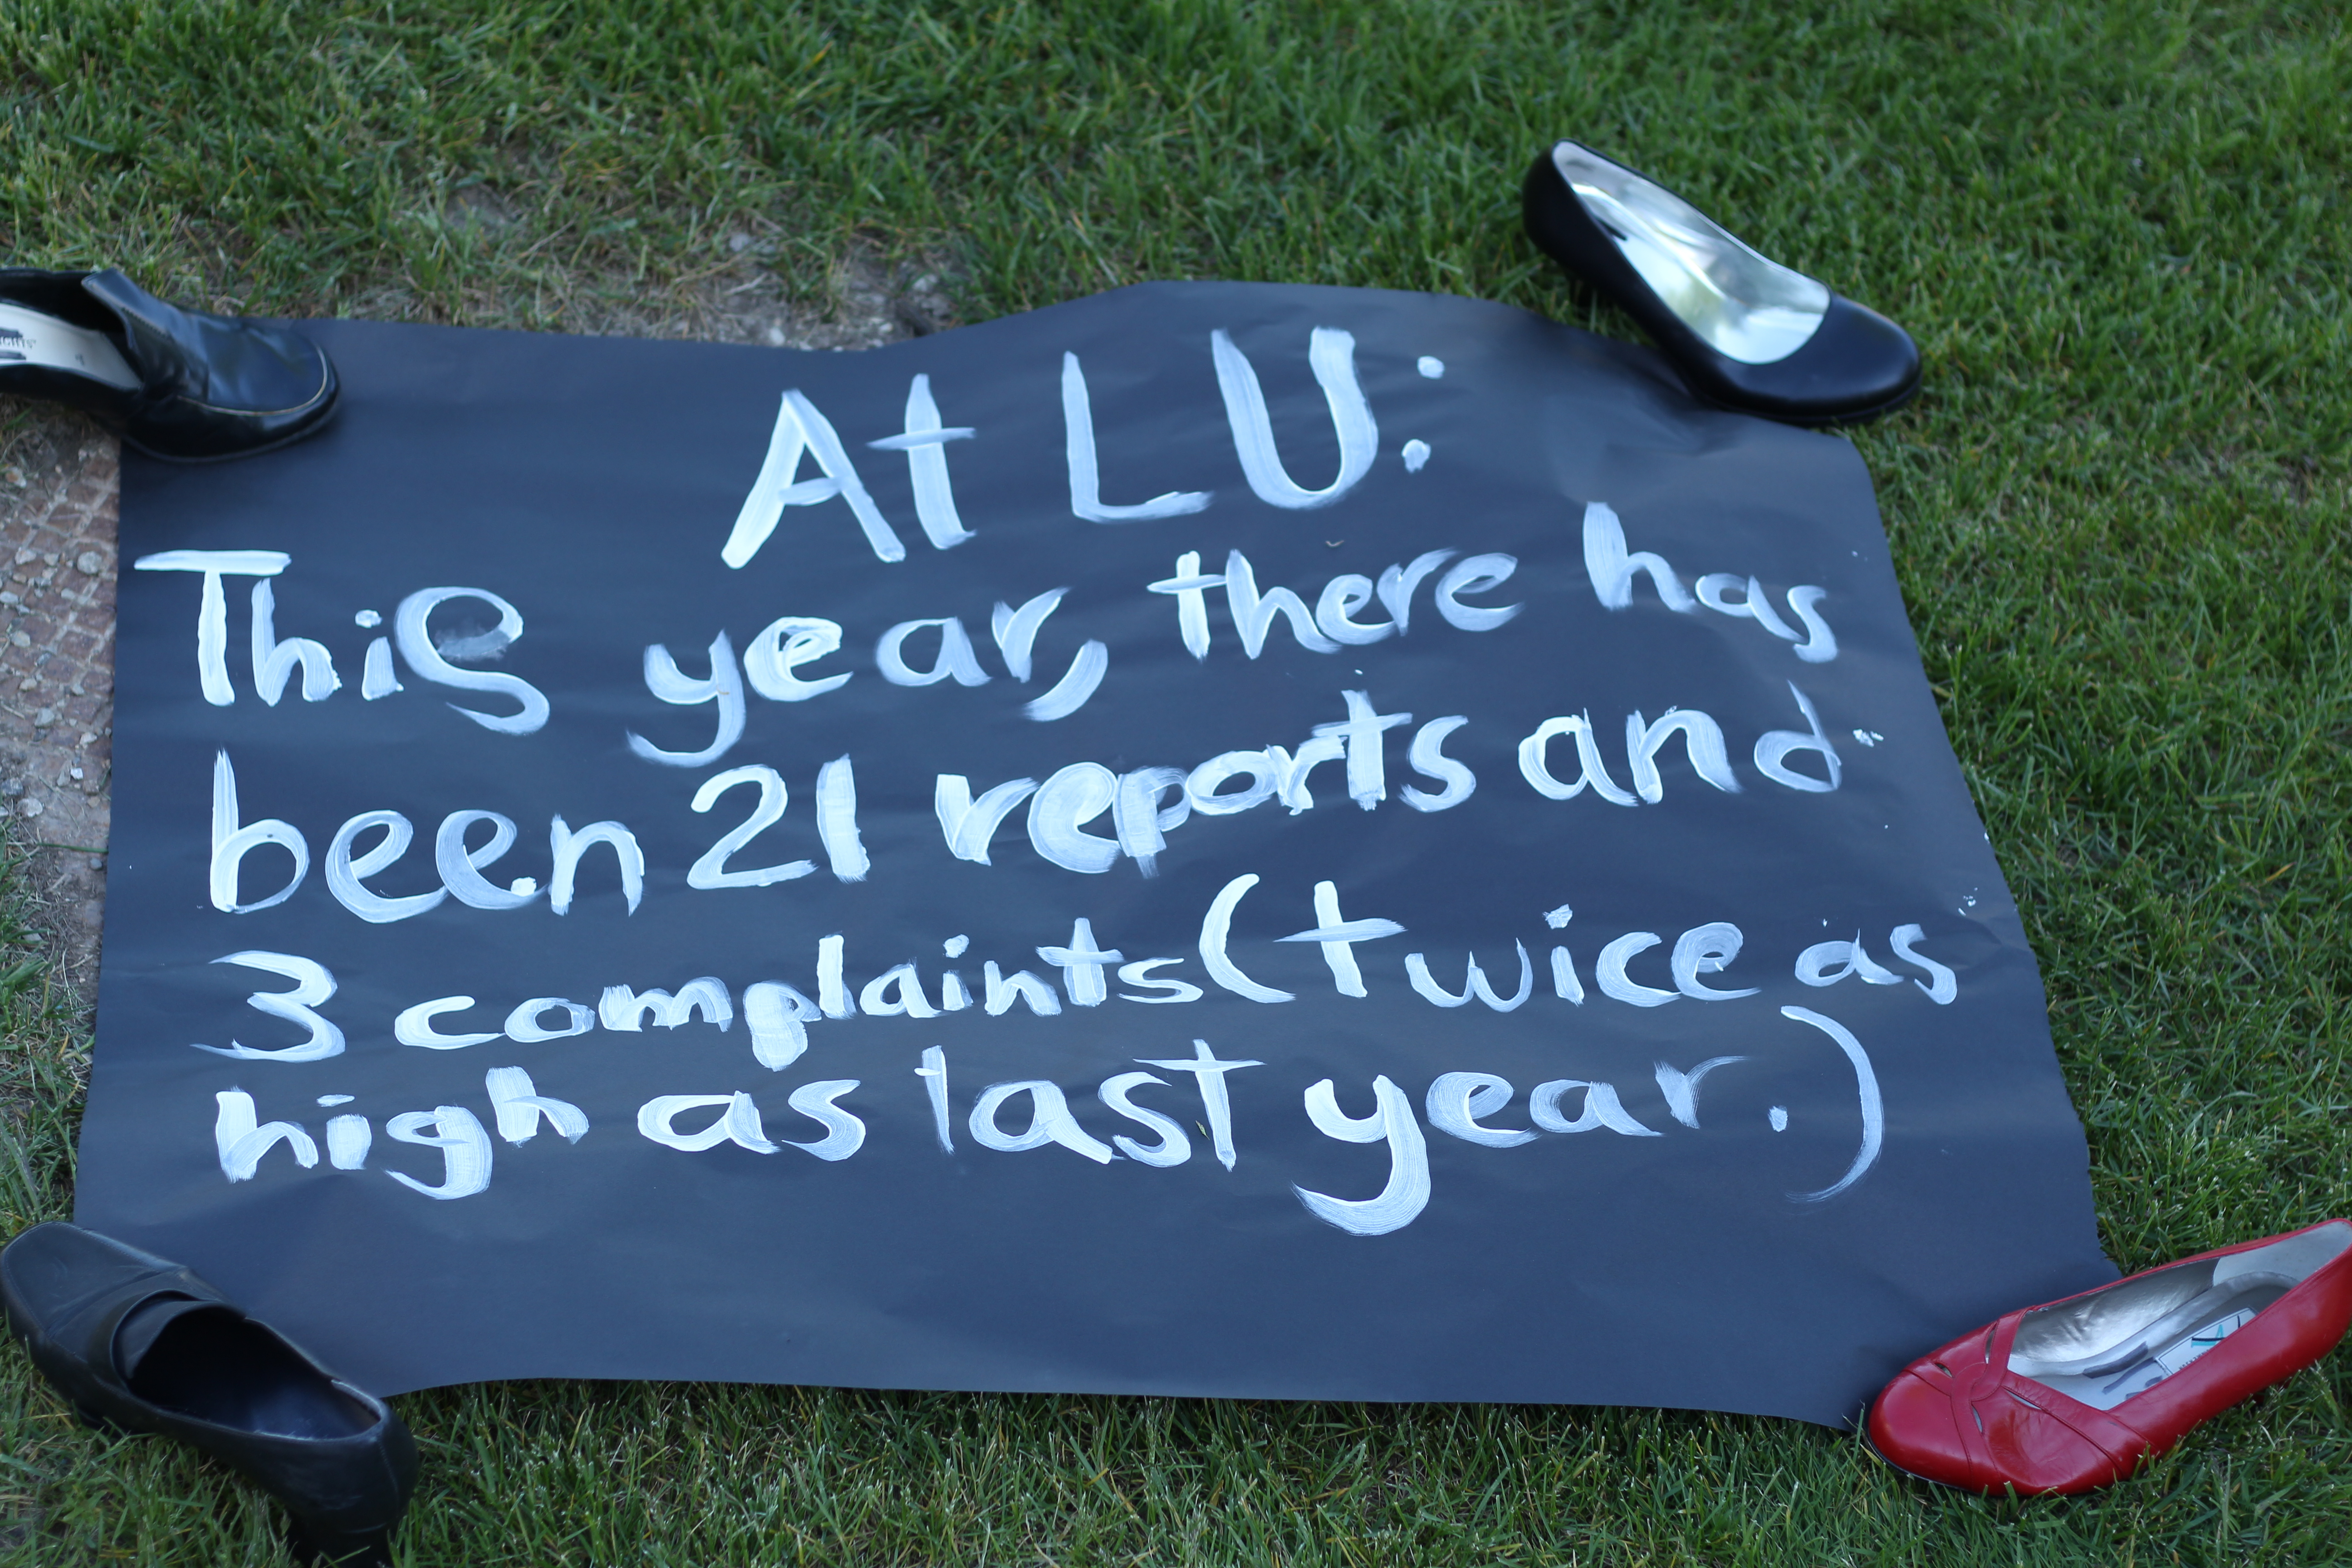 At LU:
This year, there has
been 21 reports and
3 complaints (twice as
high as last year.)